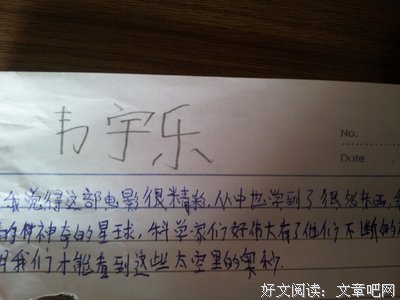 韦宇乐
No.
Date
我觉得这部电影很精彩,从中也学到了很多东西,
的何神奇的星球,科学家们好伟大有了他们不断的
我们才能看到这些太空里的奥秘.
好文阅读:文章吧网